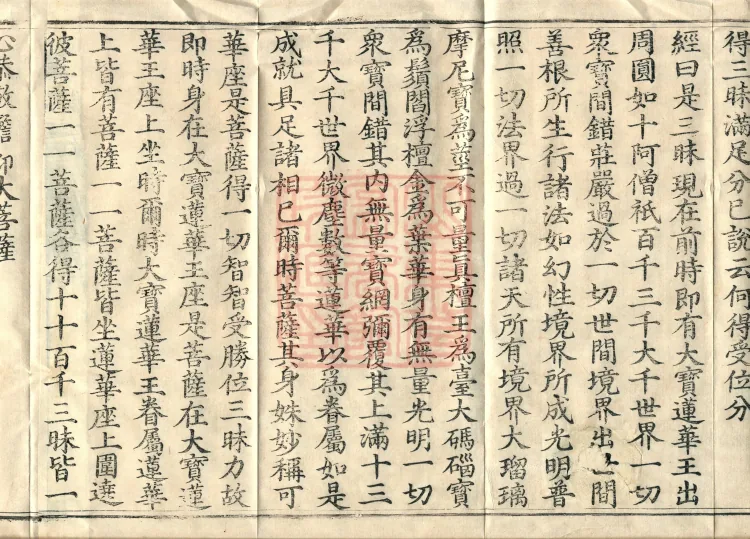 得三昧滿足分已說云何得受位分
經曰是三昧現在前時即有大寶蓮華王出
周圓如十阿僧祇百千三千大千世界一切
衆寶間錯莊嚴過於一切世間境界出世間
善根所生行諸法如幻性境界所成光明普
照一切法界過一切諸天所有境界大瑠璃
摩尼寶爲莖不可量眞檀王爲臺大碼碯寶
爲鬚閻浮檀金爲葉華身有無量光明一切
衆寶間錯其内無量寶網彌覆其上滿十三
千大千世界微塵數等蓮華以爲眷屬如是
成就具足諸相已爾時菩薩其身姝妙稱可
華座是菩薩得一切智智受勝位三昧力故
即時身在大寶蓮華王座是菩薩在大寶蓮
華王座上坐時爾時大寶蓮華王眷屬蓮華
上皆有菩薩一一菩薩皆坐蓮華座上圍遶
彼菩薩一一菩薩各得十十百千三昧皆一
心恭敬瞻仰大菩薩